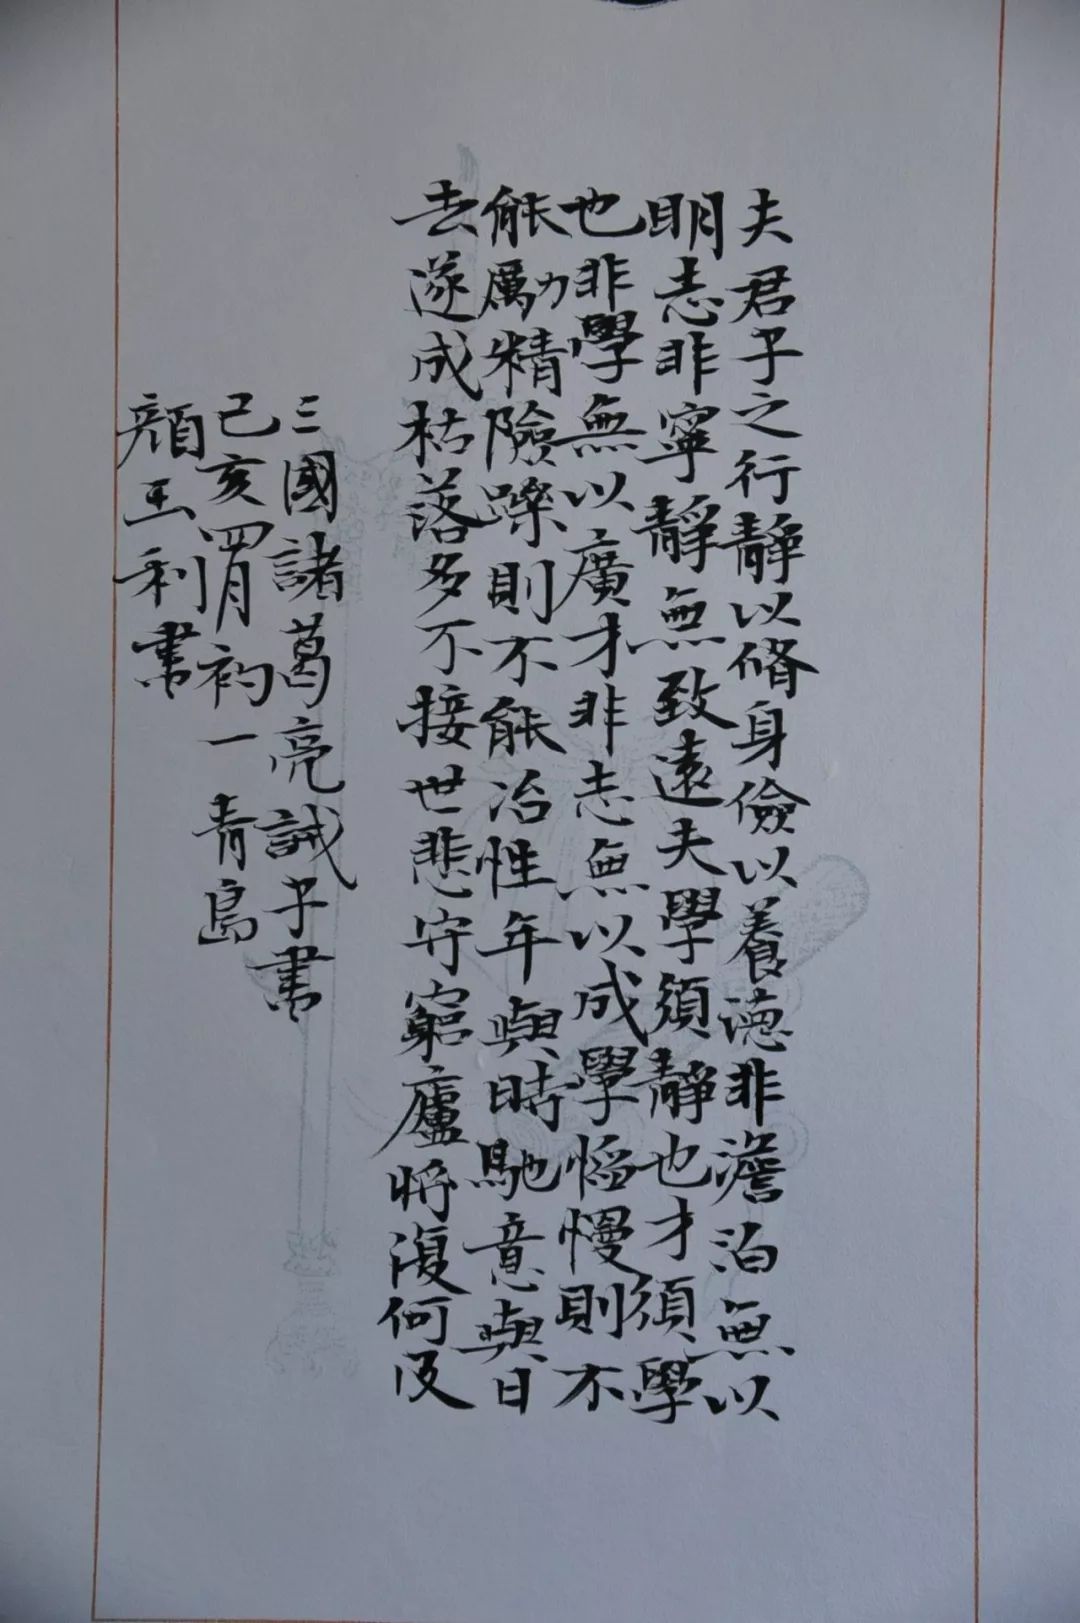 夫君子之行靜以脩身儉以養德非澹泊無以
明志非寧靜無致遠夫學須靜也才須學
也非學無以廣才非志無以成學慆慢則不
能勵精險躁則不能冶性年與時馳意與日
去遂成枯落多不接世悲守窮廬將復何及
三國諸葛亮誡子書
己亥四月初一青島
顏玉利書